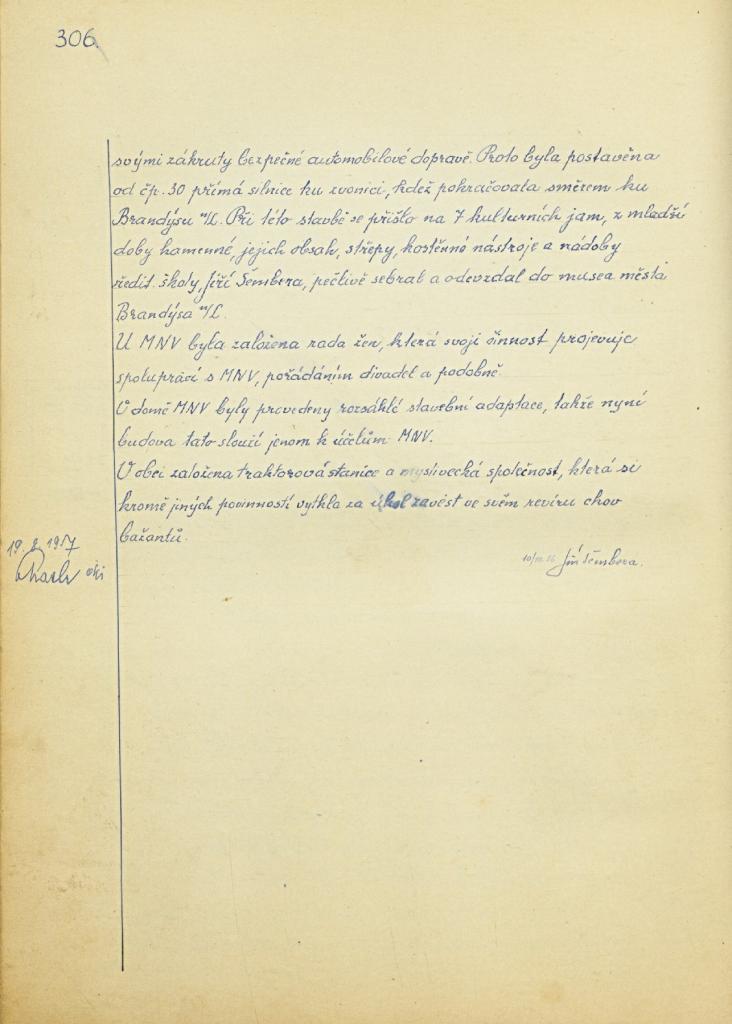 306.
svými zákruty bezpečné automobilové dopravě. Proto byla postavěna
od čp. 30 přímá silnice ku zvonici, kdež pokračovala směrem ku
Brandýsu n/L. Při této stavbě se přišlo na 7 kulturních jam, z mladší
doby kamenné, jejich obsah, střepy, kostěnné nástroje a nádoby
ředit. školy, Jiří Šembera, pečlivě sebral a odevzdal do musea města
Brandýsa n/L.
U MNV byla založena rada žen, která svoji činnost projevuje
spoluprací s MNV, pořádáním divadel a podobně.
V domě MNV byly provedeny rozsáhlé stavební adaptace, takže nyní
budova tato slouží jenom k účelům MNV.
V obci založena traktorová stanice a myslivecká společnost, která si
kromě jiných povinností vytkla za úkol zavést ve svém revíru chov
bažantů.
19. 2. 1957
Jiří Šembera.